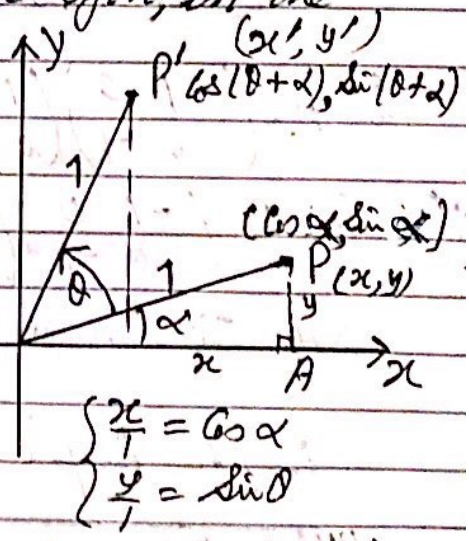 y
(x', y')
P' Cos(θ+α), Sin(θ+α)
1
(Cos α, Sin α)
P (x, y)
θ
1
α
y
x
A
x
x/1 = Cos α
y/1 = Sin θ